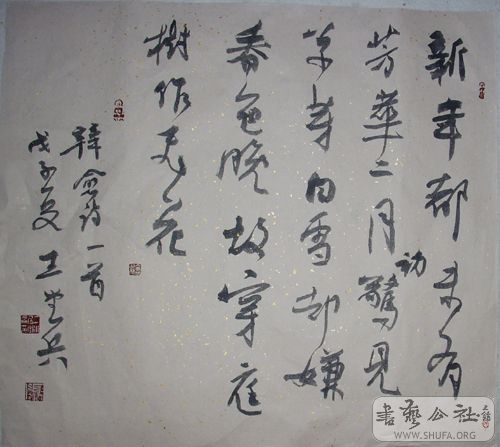 新年都未有
芳華二月初驚見
草芽白雪却嫌
春色晚故穿庭
樹作飛花
韓愈詩一首
戊子夏 王
書藝公社
WWW.SHUFA.ORG